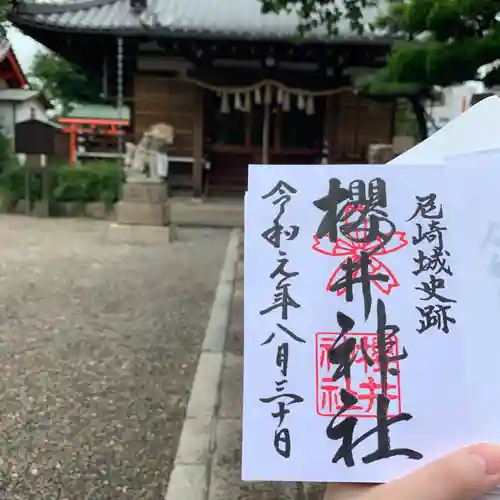 尼崎城史跡
櫻井神社
令和元年八月三十日
櫻井
神社